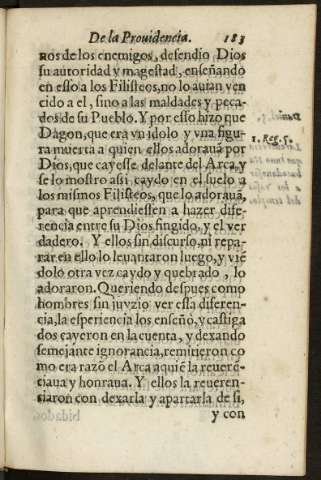 De la Prouidencia. 183
nos de los enemigos, defendio Dios
su autoridad y magestad, enseñando
en esso a los Filisteos, no lo auian ven
cido a el, sino a las maldades y peca-
dos de su Pueblo. Y por esso hizo que
Dagon, que era vn idolo y vna figu-
ra muerta a quien ellos adorauã por
Dios, que cayesse delante del Arca, y
se lo mostro assi caydo en el suelo a
los mismos Filisteos, que lo adorauã,
para que aprendiessen a hazer dife-
rencia entre su Dios fingido, y el ver
dadero. Y ellos sin discurso, ni repa-
rar en ello lo leuantaron luego, y viẽ
dolo otra vez caydo y quebrado, lo
adoraron. Queriendo despues como
hombres sin juyzio ver esta diferen-
cia, la esperiencia los enseñò, y castiga
dos cayeron en la cuenta, y dexando
semejante ignorancia, remitieron co
mo era razõ el Arca a quiẽ la reueré-
ciaua y honraua. Y ellos la reueren-
siaron con dexarla y apartarla de si,
y con
1. Reg. 5.